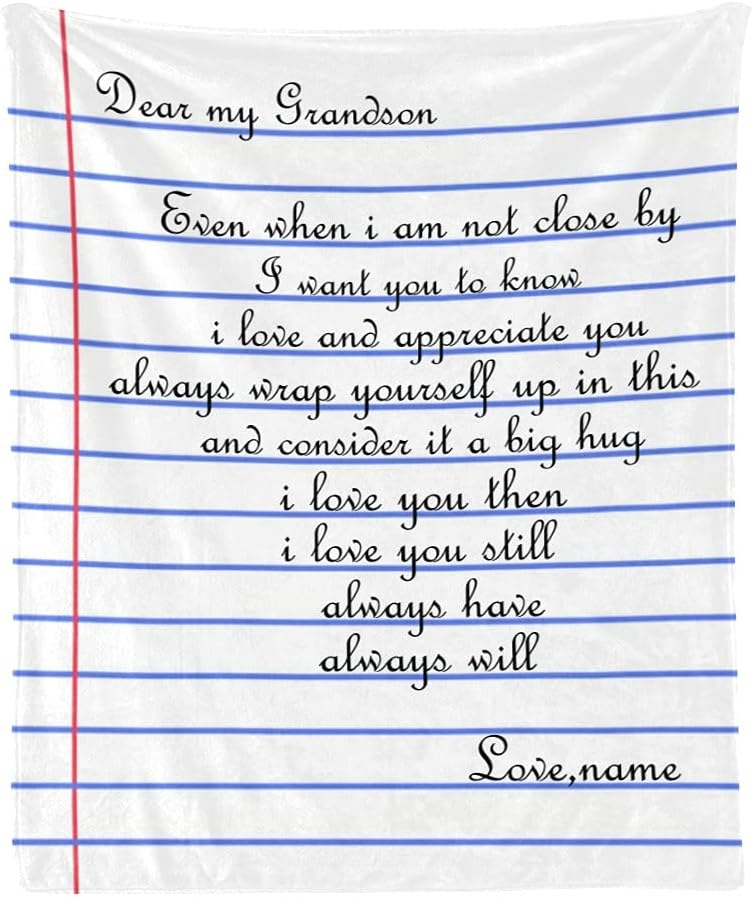 Dear my Grandson
Even when i am not close by
I want you to know
i love and appreciate you
always wrap yourself up in this
and consider it a big hug
i love you then
i love you still
always have
always will
Love,name